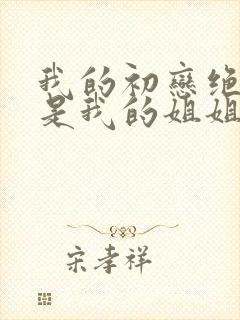 我的初戀绝
是我的姐姐
宋孝祥